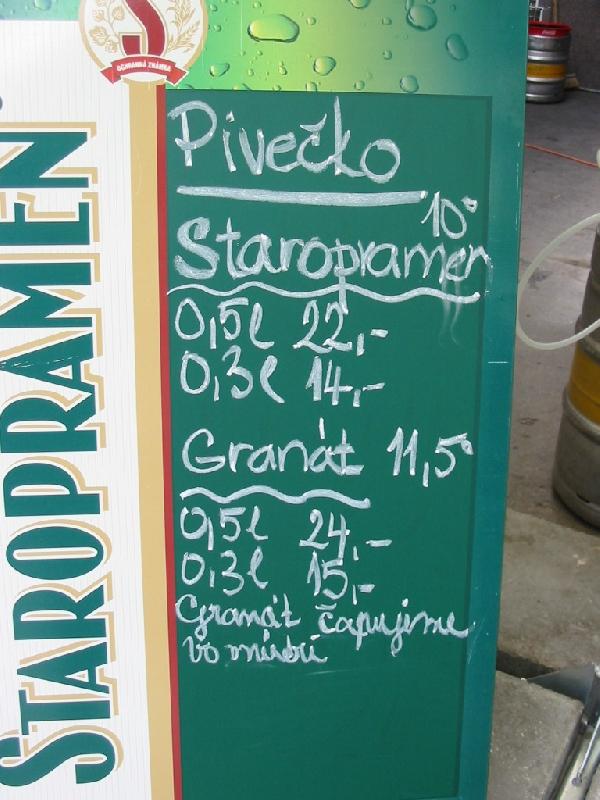 OCHRANNÁ ZNÁMKA
STAROPRAMEN
Pivečko
10°
Staropramen
0,5l 22,-
0,3l 14,-
Granát 11,5°
0,5l 24,-
0,3l 15,-
Granát čapujeme